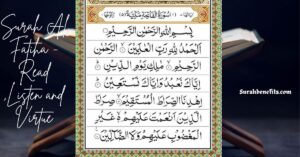 Surah Al
Fatiha
Read
Listen and
Virtue
بِسْمِ اللّٰهِ الرَّحْمٰنِ الرَّحِيْمِ
اَلْحَمْدُ لِلّٰهِ رَبِّ الْعٰلَمِيْنَ الرَّحْمٰنِ
الرَّحِيْمِ مٰلِكِ يَوْمِ الدِّيْنِ
اِيَّاكَ نَعْبُدُ وَاِيَّاكَ نَسْتَعِيْنُ
اِهْدِنَا الصِّرَاطَ الْمُسْتَقِيْمَ صِرَاطَ
الَّذِيْنَ اَنْعَمْتَ عَلَيْهِمْ غَيْرِ
الْمَغْضُوْبِ عَلَيْهِمْ وَلَا الضَّآلِّيْنَ
Surahbenefits.com